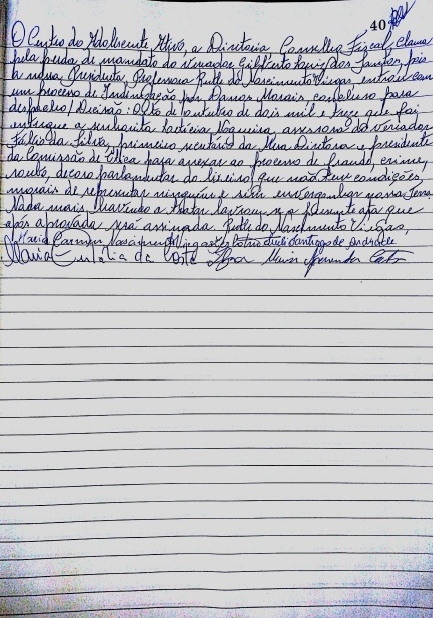 40
O Centro do Adolescente Ativo, a Diretoria Conselho Fiscal, clama
pela perda de mandato do vereador Gilberto dos Santos, pois
a nossa Presidenta, Professora Ruth do Nascimento Viegas, entrou com
um processo de Indenização por Danos Morais, concluso para
despacho/Decisão: Oito de outubro de dois mil e treze que foi
entregue a senhorita Laticia Nogueira, assessora do vereador
Fábio da Silva, primeiro secretário da Mesa Diretora e presidente
da Comissão de Ética para anexar ao processo de fraude, crime,
roubo, decoro parlamentar do que não tem condições
morais de representar ninguém e sim envergonhar nossa Terra
Nada mais havendo a tratar lavrou se a presente ata que
após aprovada será assinada Ruth do Nascimento Viegas,
Maria Carmen Nascimento Viegas Santiago de Andrade
Maria Eulália da Costa